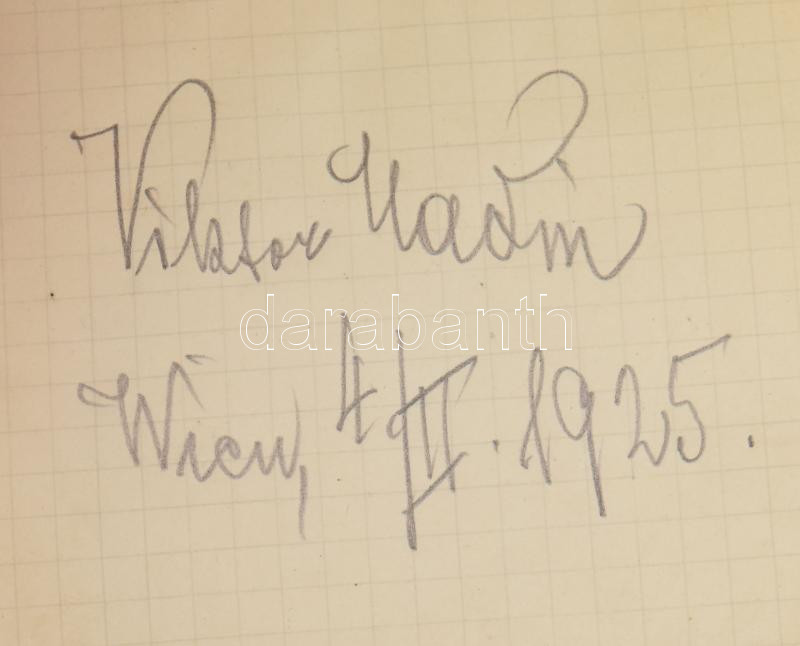 Viktor Madin
darabanth
Wien, 4/II. 1925.